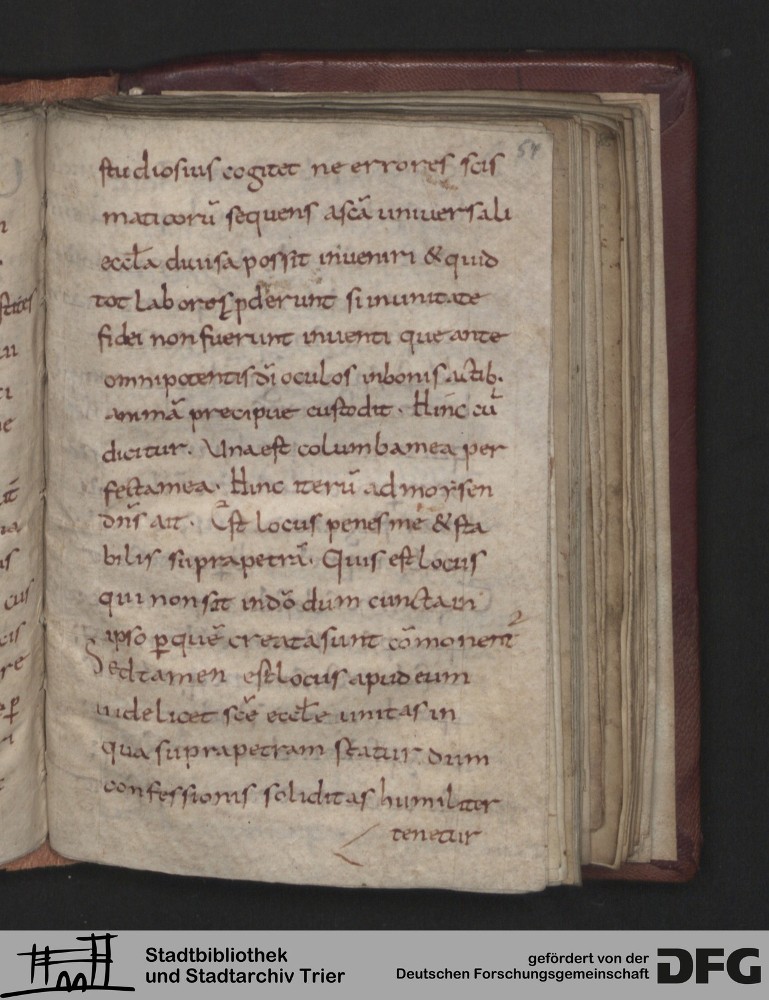 54
studiosius cogitet ne errores scis
maticorū sequens ascā universali
eccła divisa possit inveniri & quid
tot labores pderunt si in unitate
fidei non fuerunt inventi que ante
omnipotentis dī oculos in bonis actib.
animā precipue custodit. Hinc cū
dicitur. Una est columba mea per
fecta mea. Hinc iterū ad moysen
dns̄ ait. Est locus penes me & sta
bilis supra petrā. Quis est locus
qui non sit in dō dum cuncta in
ipso ꝑ quē creata sunt cōmonent
Sed tamen est locus apud eum
videlicet scē eccłe unitas in
qua supra petram statur dum
confessionis soliditas humiliter
tenetur
Stadtbibliothek
und Stadtarchiv Trier
gefördert von der
Deutschen Forschungsgemeinschaft
DFG